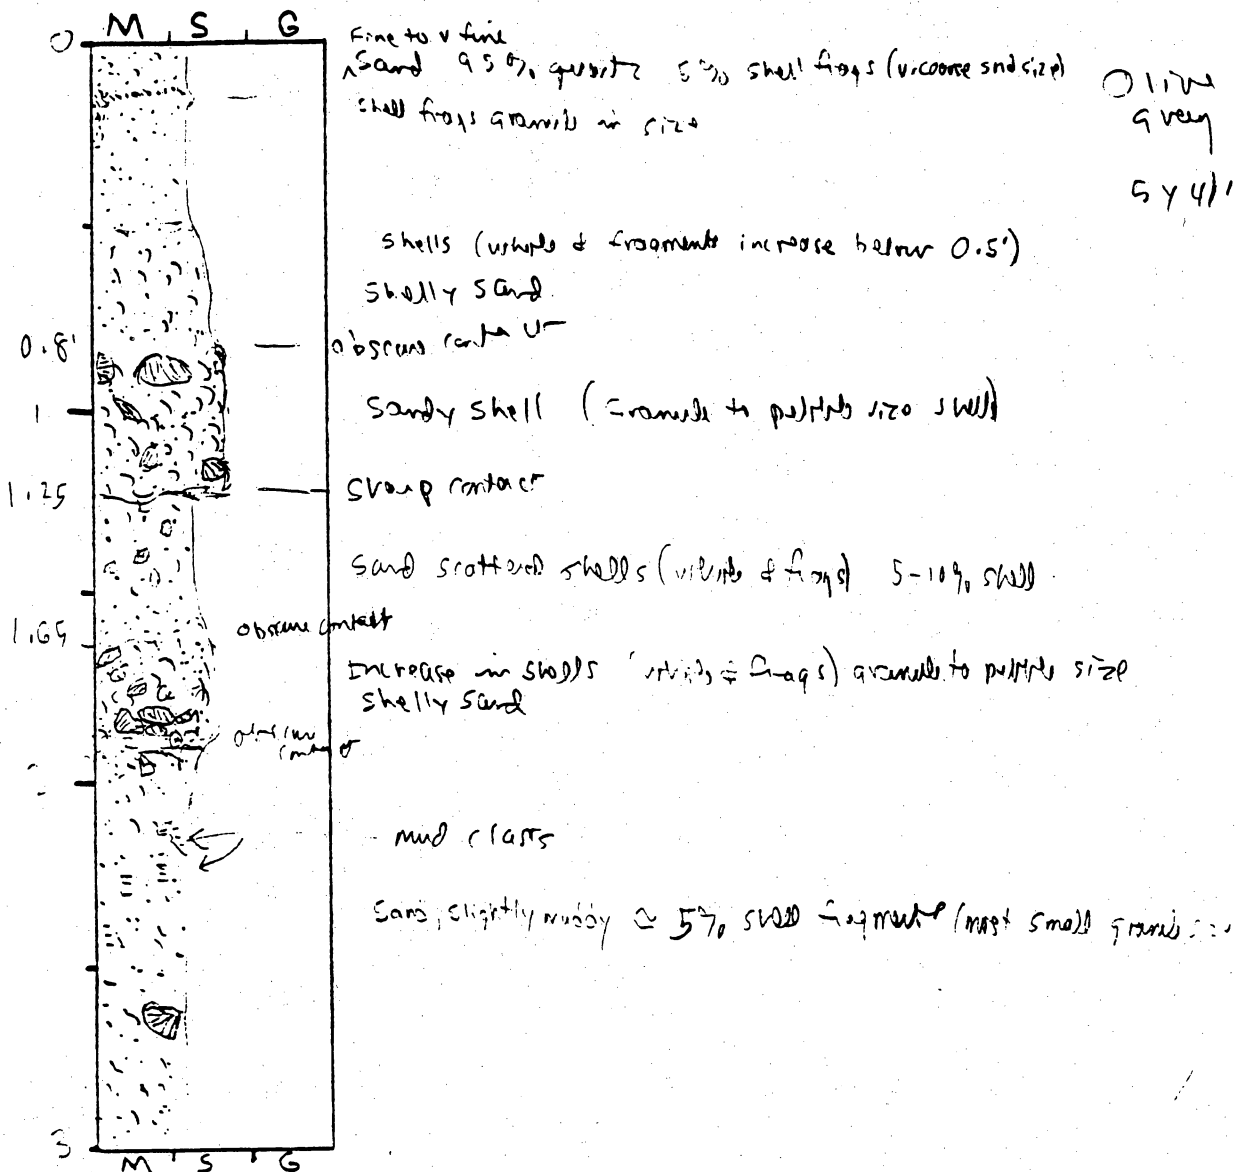 M S G
0
Fine to v fine
^Sand 95% quartz 5% shell frags (v.coarse snd size)
Olive
grey
shell frags granule in size
5Y 4/1
shells (whole & fragments increase below 0.5')
shelly sand
0.8'
obscure contact
1
Sandy shell (Granule to pebble size shell)
1.25
sharp contact
Sand scattered shells (whole & frags) 5-10% shell
1.65
obscure contact
Increase in shells (whole & frags) granule to pebble size
shelly sand
obscure
contact
mud clasts
Sand, slightly muddy ≈ 5% shell fragments (most small granule
3
M S G